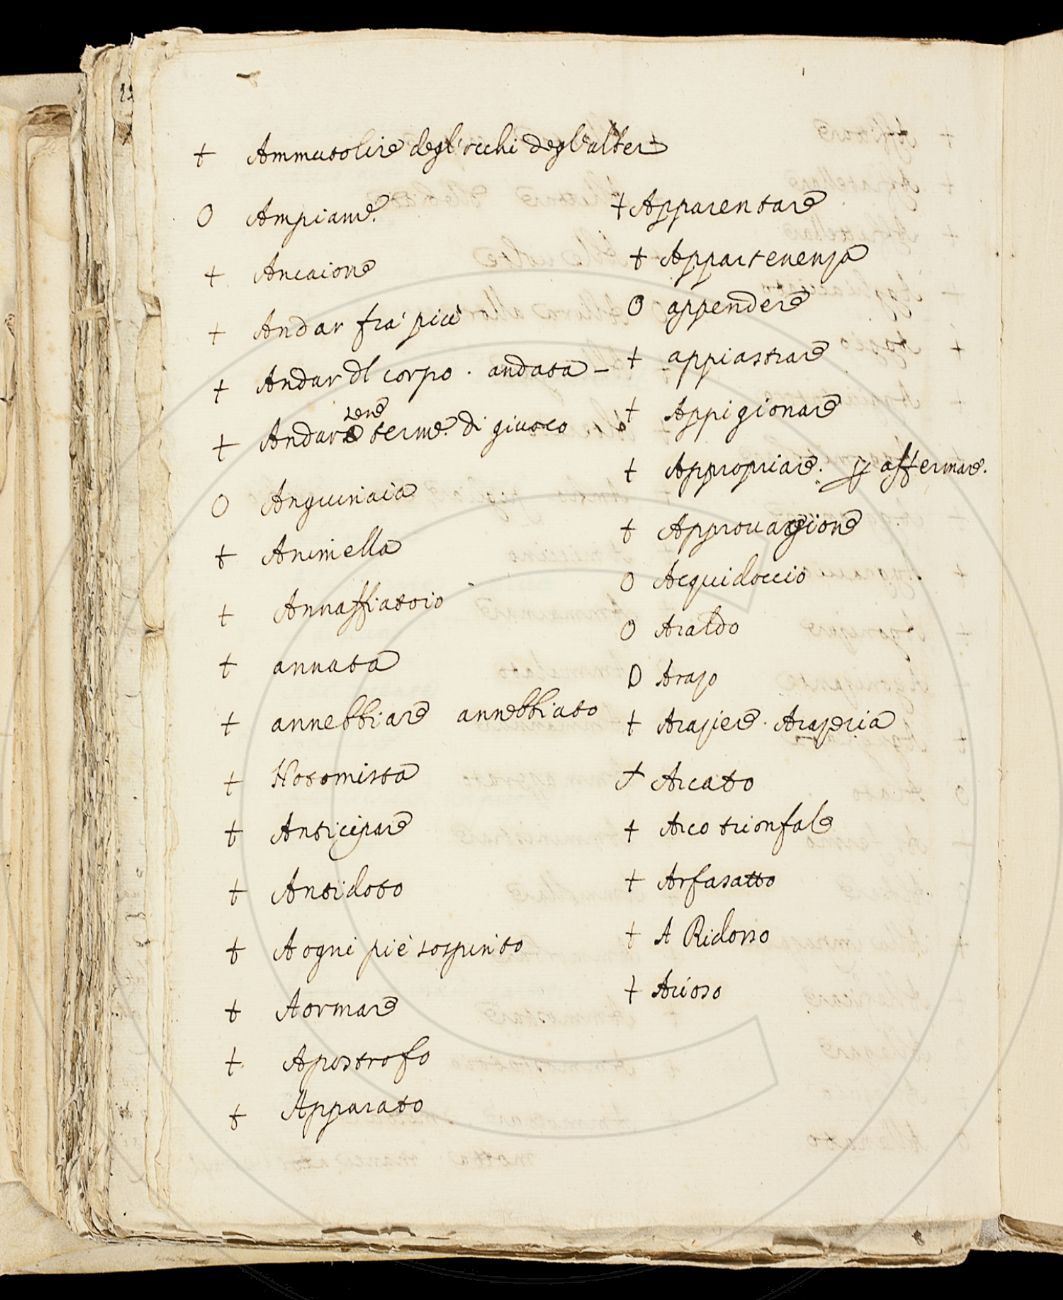 + Ammutolire degl'occhi degl'alberi
O Ampiame.
+ Ancaione
+ Andar fra' più
+ Andar dl corpo . andata –
zene
+ Andare terme. di giuoco
O Anguinaia
+ Animella
+ Annaffiatoio
+ annata
+ annebbiare annebbiato
+ Notomista
+ Anticipare
+ Antidoto
+ A ogni piè sospinto
+ Aormare
+ Apostrofo
+ Apparato
+ Apparentare
+ Appartenenza
O appendere
+ appiastrare
+ Appigionare
+ Appropriare. affermare.
+ Approvagione
O Acquidoccio
O Araldo
O Arazo
+ Araziere . Arazeria
+ Arcato
+ Arco trionfale
+ Arfasatto
+ A Ridosso
+ Arioso